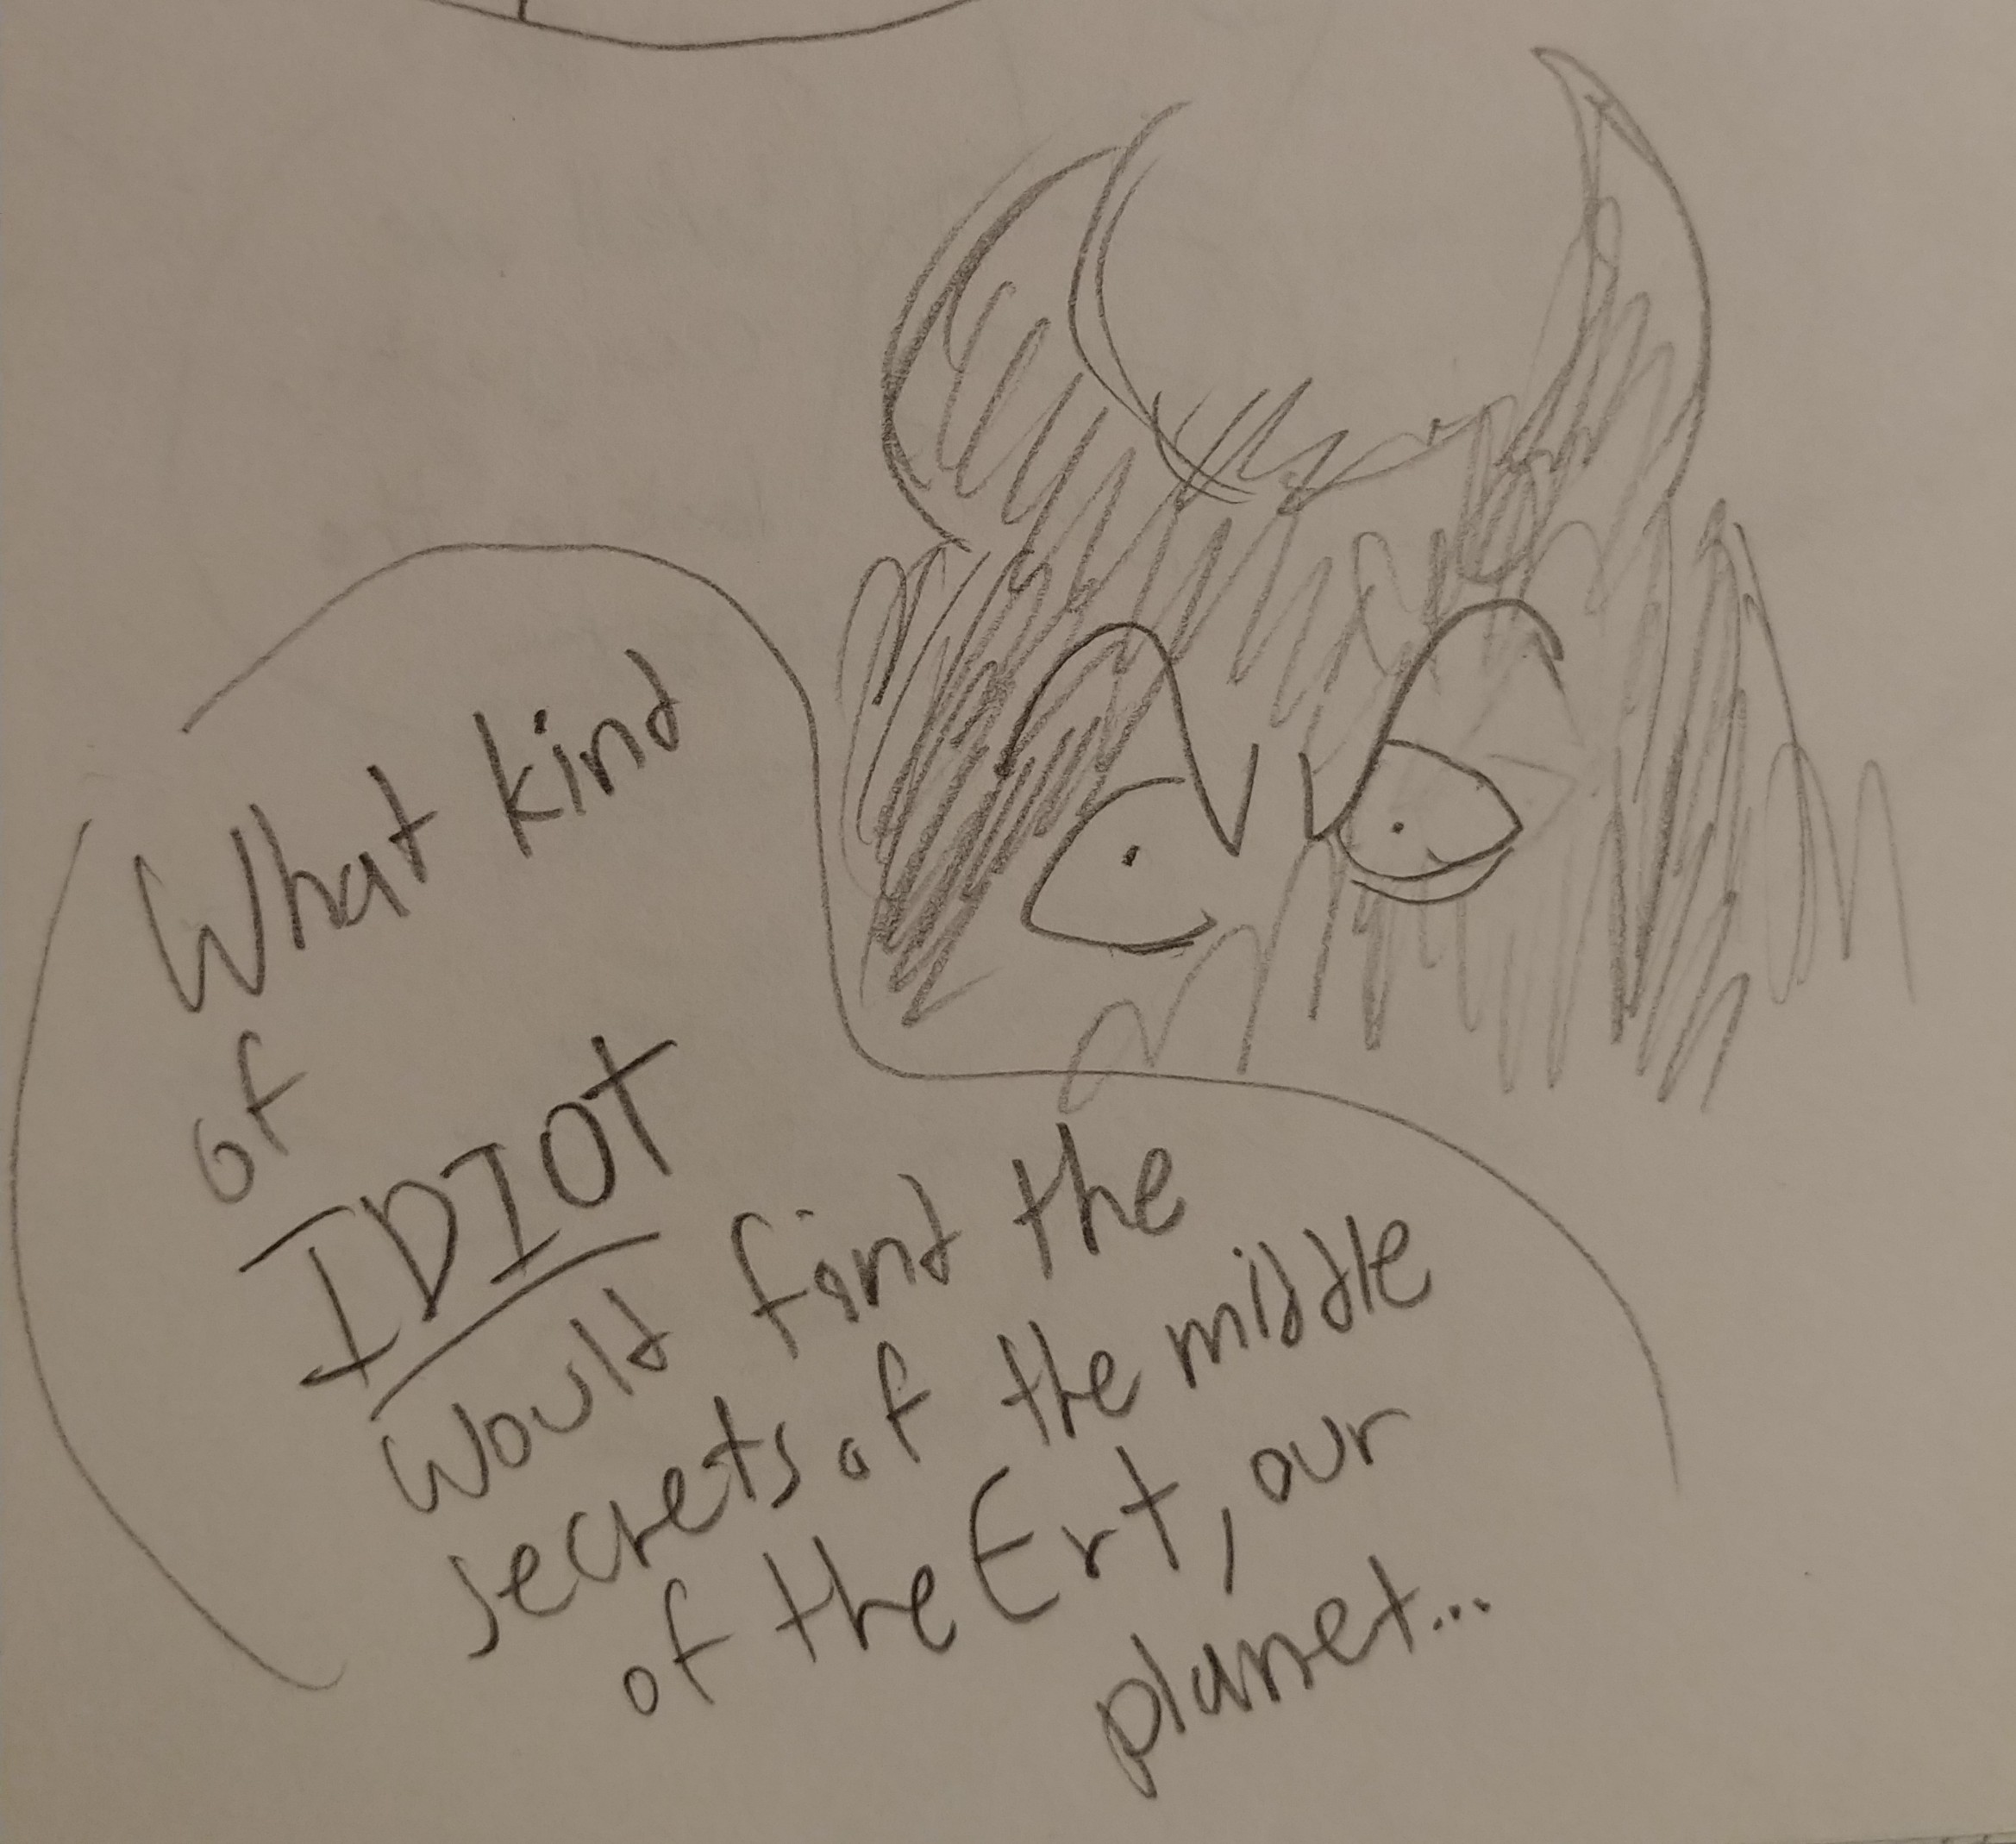 What kind
of
IDIOT
would find the
secrets of the middle
of the Ert, our
planet...